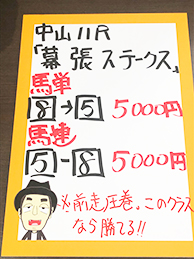 中山11R
「幕張ステークス」
馬単
8→5 5000円
馬連
5-8 5000円
※前走圧巻。このクラス
なら勝てる!!